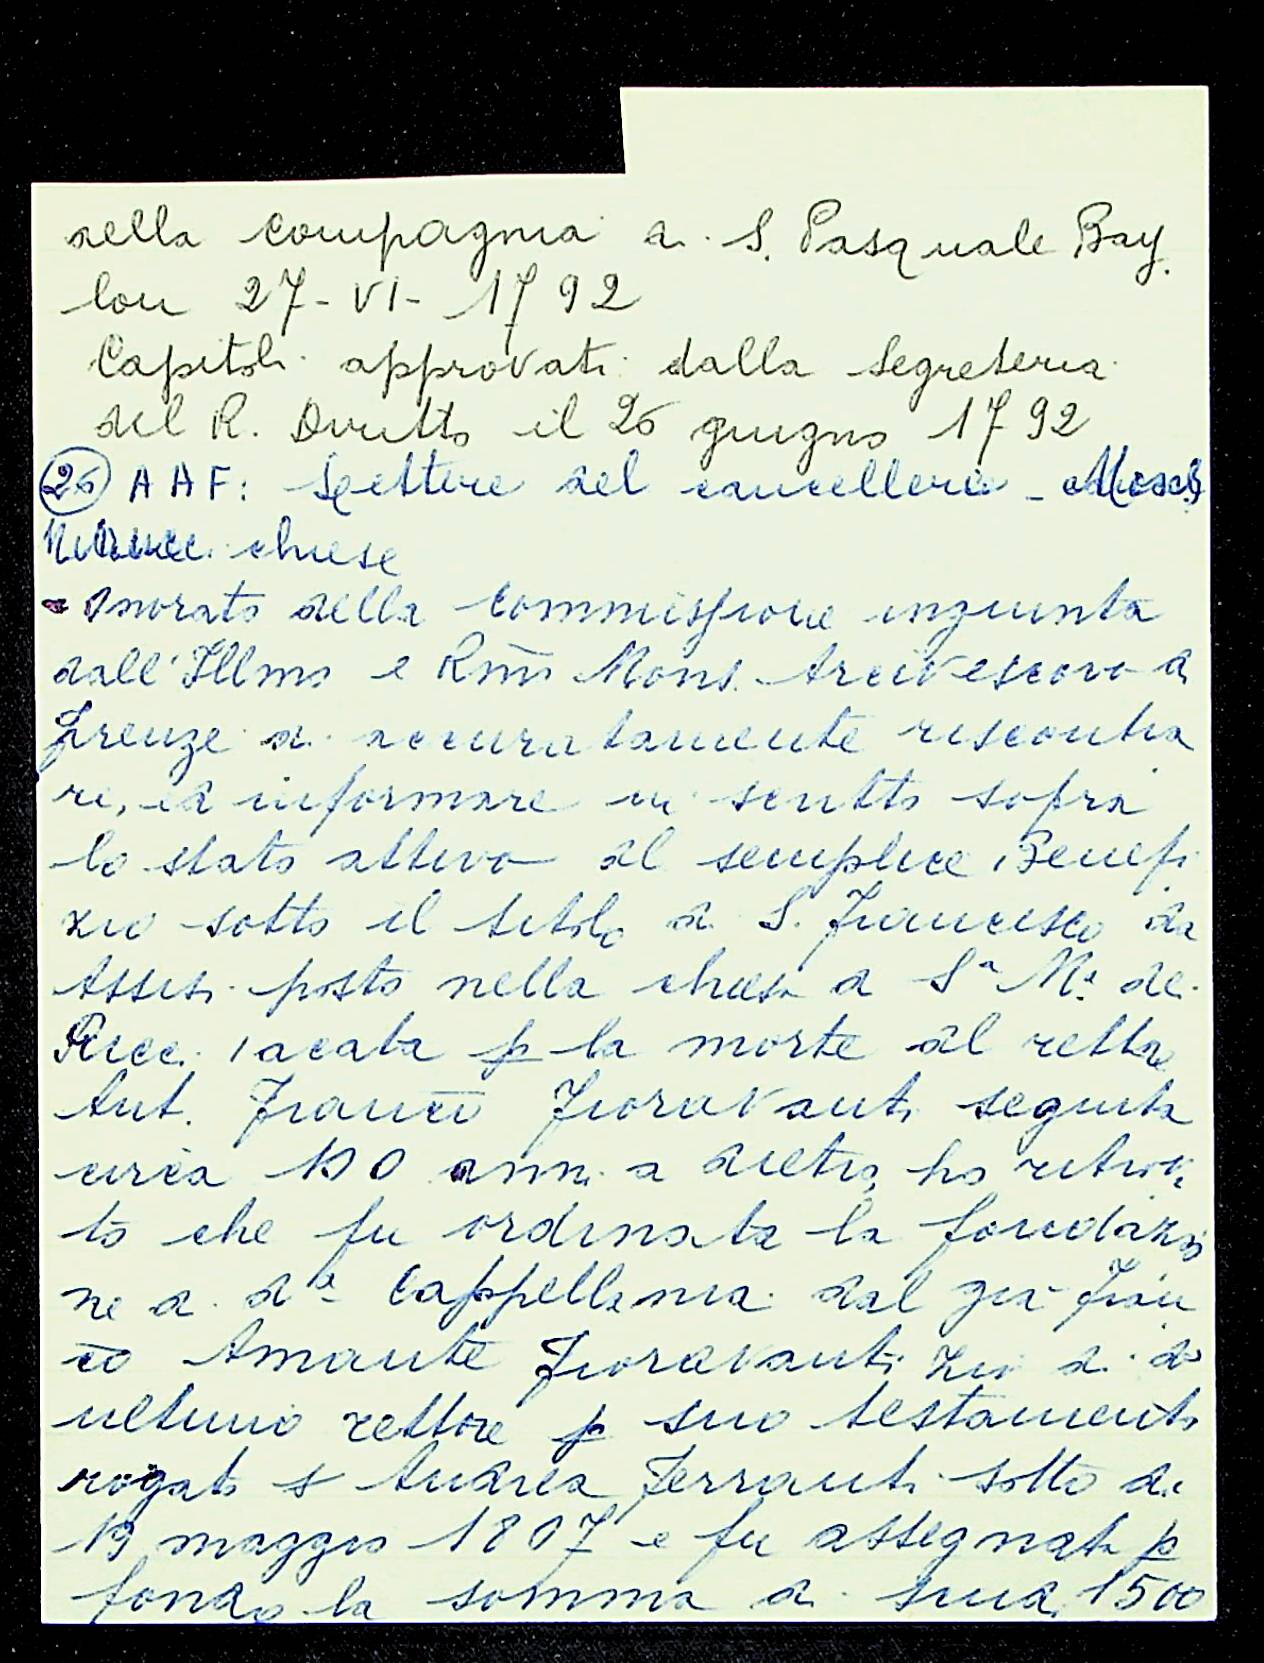 nella compagnia di S. Pasquale Bay.
lon 27-VI-1792
Capitoli approvati dalla Segreteria
del R. Diritto il 26 giugno 1792
(26) AAF: Lettere del cancelliere
chiese
Onorato della commissione ingiunta
dall'Illmo e Rmo Mons. Arcivescovo di
Firenze di accuratamente riscontra
re, ed informare in scritto sopra
lo stato attivo del semplice Benefi
zio sotto il titolo di S. Francesco da
Assisi posto nella chiesa di Sa Ma de
Ricci vacata p la morte del rettore
Ant. Franco Fioravanti seguita
circa anni a dietro, ho ritrova
to che fu ordinata la fondazio
ne di da Cappellania dal già Fran
co Amante Fioravanti zio di do
ultimo rettore p suo testamento
rogato s Andrea Ferranti sotto di
19 maggio 1807 e fu assegnata p
fondo la somma di scudi 1500